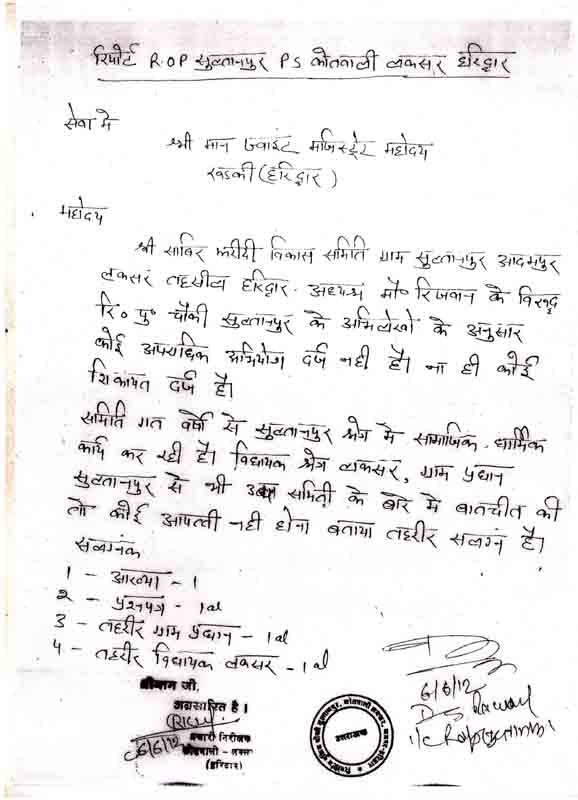 रिपोर्ट R.O.P सुल्तानपुर PS कोतवाली लकसर हरिद्वार
सेवा मे
श्री मान ज्वाइंट मजिस्ट्रेट महोदय
रूडकी (हरिद्वार)
महोदय
श्री साबिर फरीदी विकास समिति ग्राम सुल्तानपुर आदमपुर
लकसर तहसील हरिद्वार. अध्यक्ष मौ० रिजवान के विरुद्ध
रि० पु० चौकी सुल्तानपुर के अभिलेखो के अनुसार
कोई अपराधिक अभियोग दर्ज नही है। ना ही कोई
शिकायत दर्ज है।
समिति गत वर्षो से सुल्तानपुर क्षेत्र मे सामाजिक धार्मिक
कार्य कर रही है। विधायक क्षेत्र लकसर, ग्राम प्रधान
सुल्तानपुर से भी उक्त समिती के बारे मे बातचीत की
तो कोई आपत्ती नही होना बताया तहरीर सलग्नं है।
सलग्नंक
1 - आख्या - 1
२ - प्रश्नपत्र - 1
3 - तहरीर ग्राम प्रधान - 1
4 - तहरीर विधायक लकसर - 1
श्रीमान जी,
अग्रसारित है।
6/6/12
प्रभारी निरीक्षक
कोतवाली - लक्सर
(हरिद्वार)
उत्तराखण्ड
6/6/12
D S Rawat